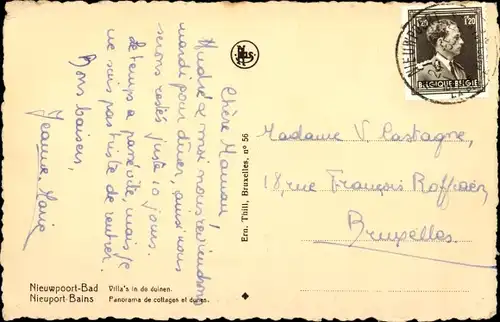 Chère Maman!
André & moi nous reviendrons
mardi pour dîner, ainsi nous
serons restés juste 10 jours.
Le temps a passé vite, mais je
ne suis pas triste de rentrer.
Bons baisers,
Jeanne-Marie
Ern. Thill, Bruxelles, nº 56
1.20 1.20
BELGIQUE BELGIË
NIEUWPOORT
Madame V. Castagne,
18, rue François Roffiaen,
Bruxelles.
Nieuwpoort-Bad Villa's in de duinen.
Nieuport-Bains Panorama de cottages et dunes.